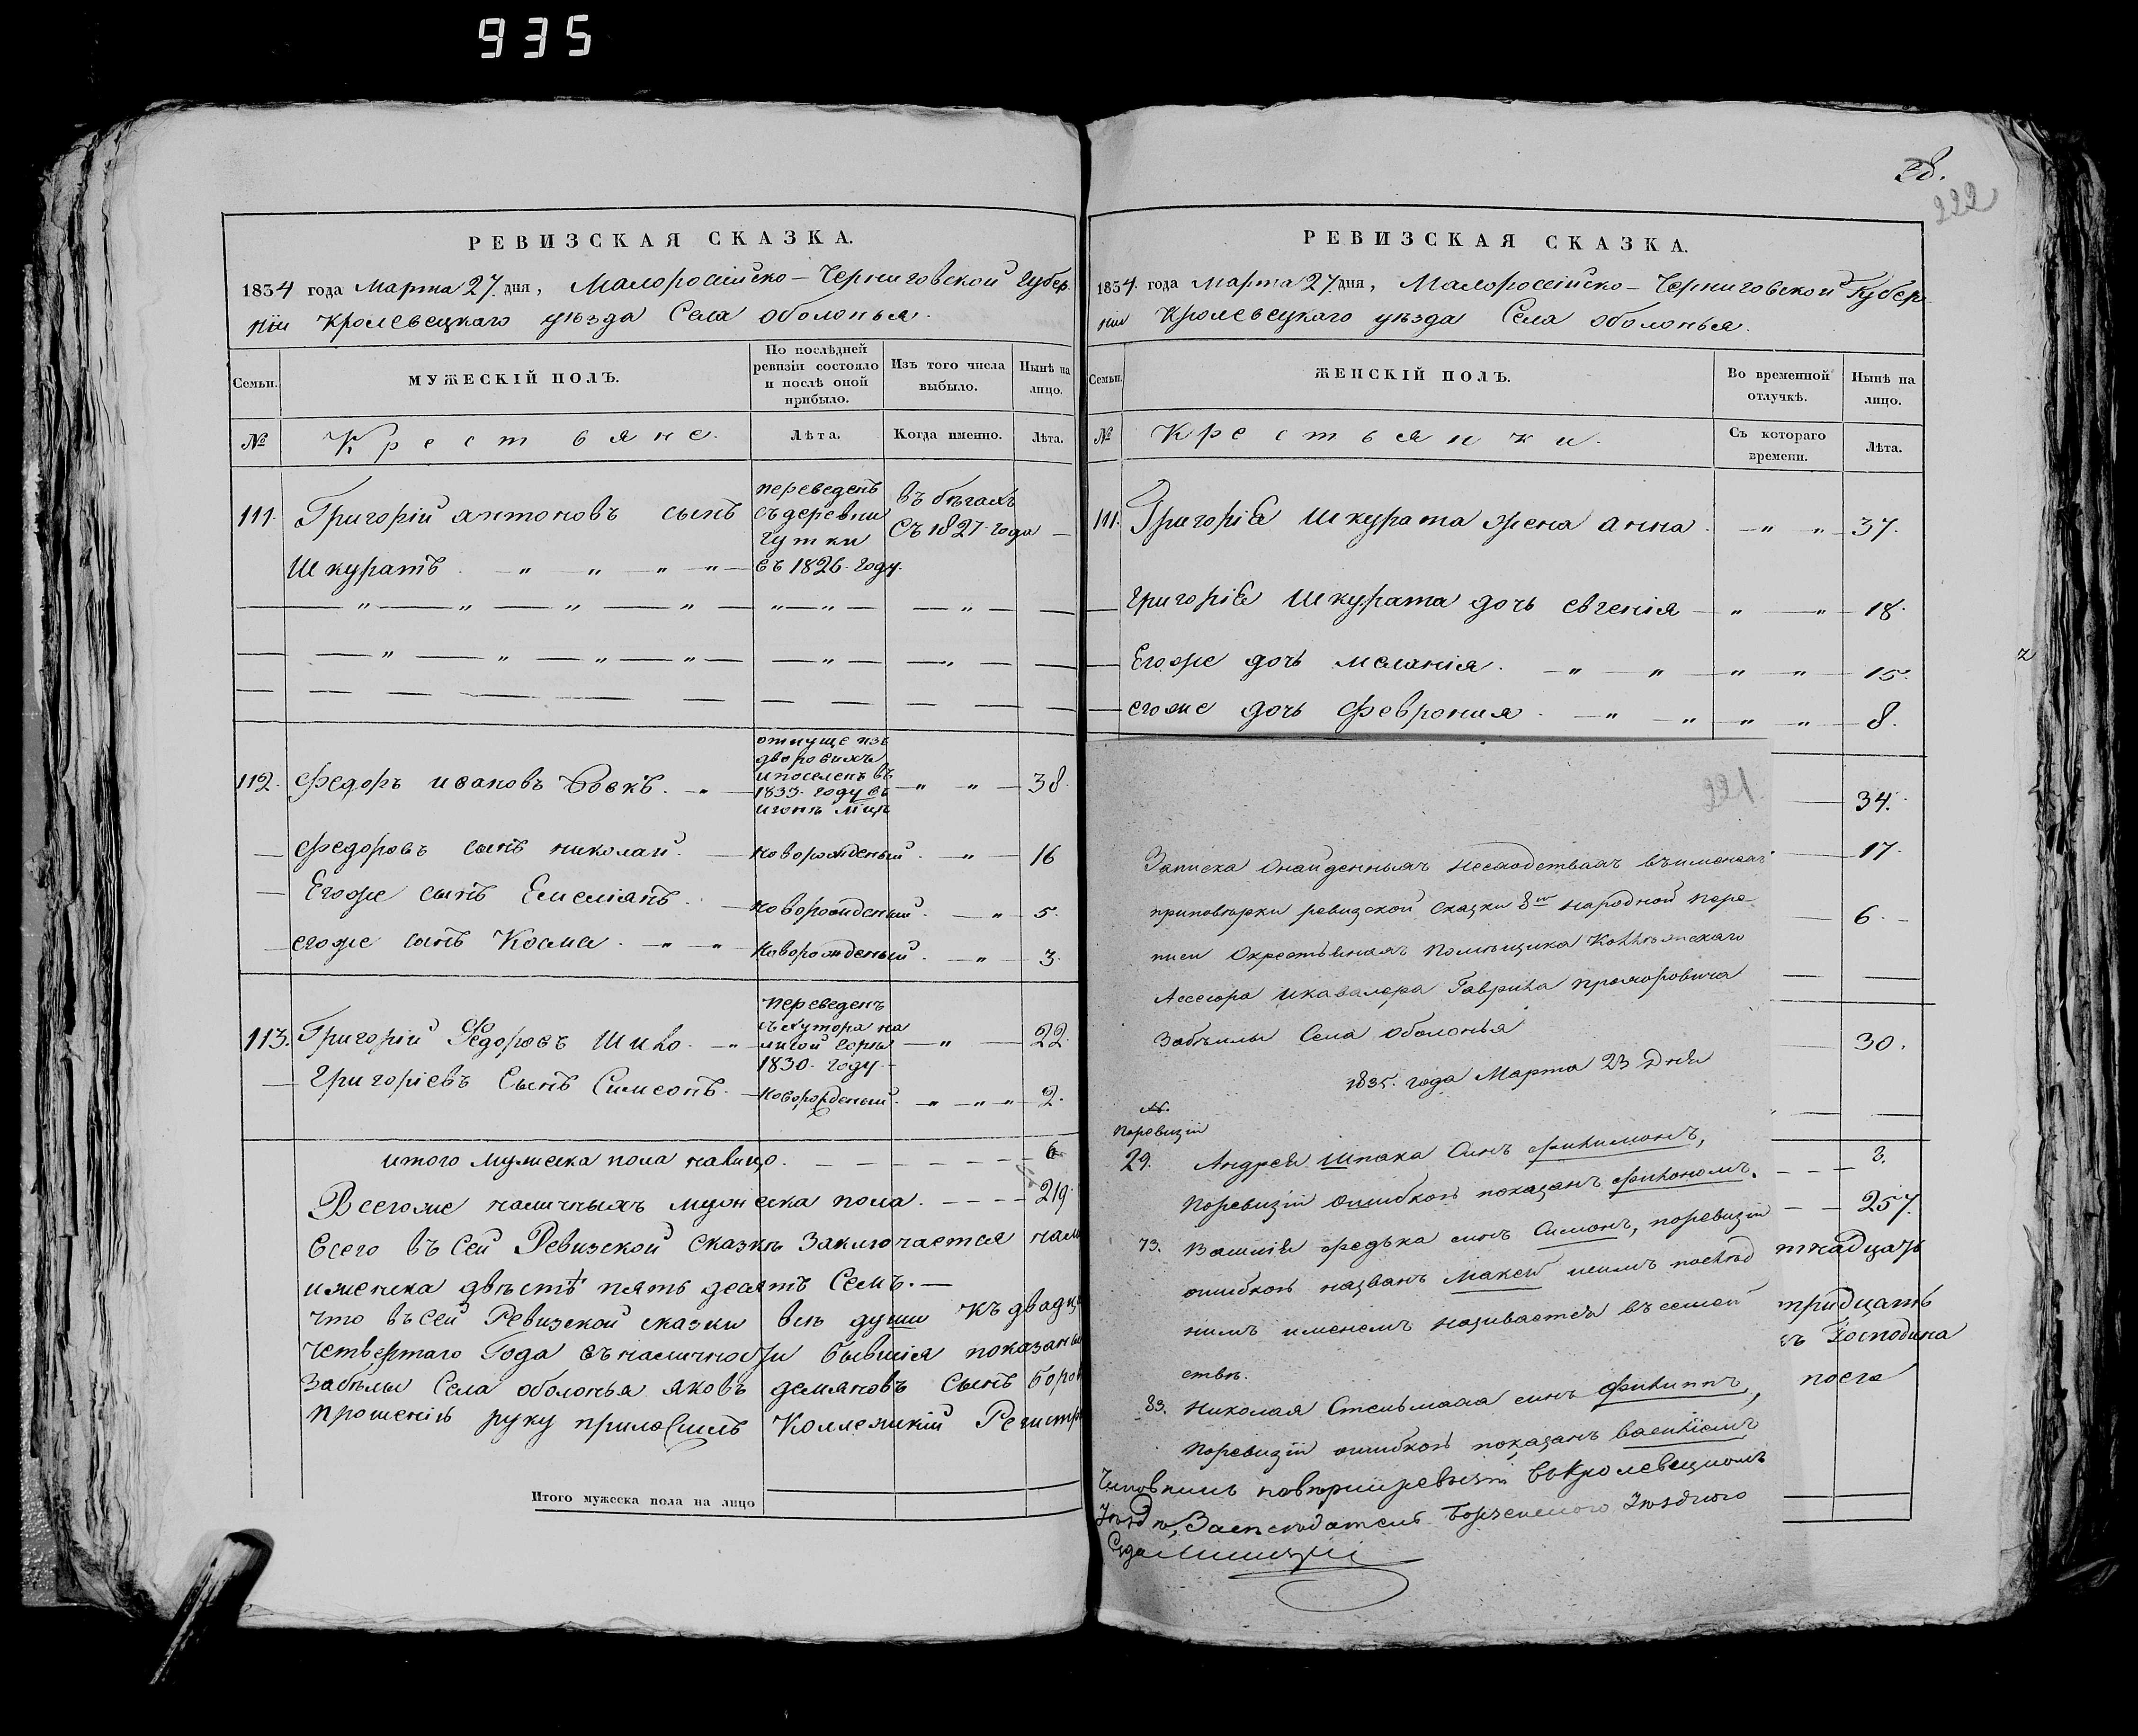 935
РЕВИЗСКАЯ СКАЗКА.
1834 года Марта 27. дня, Малоросійско – Черниговской Губер
ніи Кролевецкаго уѣзда Села оболонья.
Семьи.
МУЖЕСКІЙ ПОЛЪ.
По послѣдней
ревизіи состояло
и послѣ оной
прибыло.
Изъ того числа
выбыло.
Нынѣ на
лицо.
№
Крестьяне.
Лѣта.
Когда именно.
Лѣта.
111. Григорій антоновъ сынъ
Шкуратъ
переведенъ
съ деревни
гутки
въ 1826. году.
въ бѣгахъ
Съ 1827 года
112. Федоръ ивановъ
отпуще изъ
дворовихъ
и поселенъ въ
1833. году въ
38.
Федоровъ сынъ николай. новорожденый. 16
Егоже сынъ Емеліянъ. новорожденый. 5.
егоже сынъ Косма. новорожденый. 3.
113. Григорій Федоровъ Шило.
переведенъ
съ хутора на
лисой горы
1830. году
22.
Григоріевъ Сынъ Симеонъ. новорожденый. 2.
итого мужеска пола налицо. 6
Всегоже наличныхъ мужеска пола. 219.
Всего въ сей Ревизской сказкѣ Заключается
двѣстѣ пять десятъ Семъ.
что въ сей Ревизской сказки всѣ души къ двадца
четвертаго Года въ наличности бывшія показаны
Забѣлы Села оболонья яковъ демяновъ сынъ
прошенія руку приложилъ Коллежкій Регистр
Итого мужеска пола на лицо
28.
222
РЕВИЗСКАЯ СКАЗКА.
1834. года марта 27. дня, Малоросійско – Черниговской Губер
ніи Кролевецкаго уѣзда Села оболонья.
Семьи.
ЖЕНСКІЙ ПОЛЪ.
Во временной
отлучкѣ.
Нынѣ на
лицо.
№
Крестьянки.
Съ котораго
времени.
Лѣта.
111. Григорія Шкурата жена анна 37.
григорія Шкурата дочь евгенія 18.
Егоже дочь меланія. 15.
егоже дочь феврония. 8.
34.
17.
6.
30.
2.
257.
тридцать
Господина
221.
Записка Онайденныхъ несходствахъ въименахъ
приповѣрки ревизской сказки 8й народной пере
писи Окрестьянахъ Помѣщика Коллѣжскаго
Ассесора икавалера Гаврила прохоровича
Забѣлы Села оболонья
1835. года Марта 23 Дня
№.
Поревизіи
29. Андрея Шпака Синъ филимонъ,
Поревизіи ошибкою показанъ филономъ.
73. федька синъ Симонъ, поревизіи
ошибкою названъ послѣд
нимъ именемъ називается въ семей
ствѣ.
83. Николая Стельмаха синъ филиппъ,
Поревизіи ошибкою показанъ василіемъ
Суда